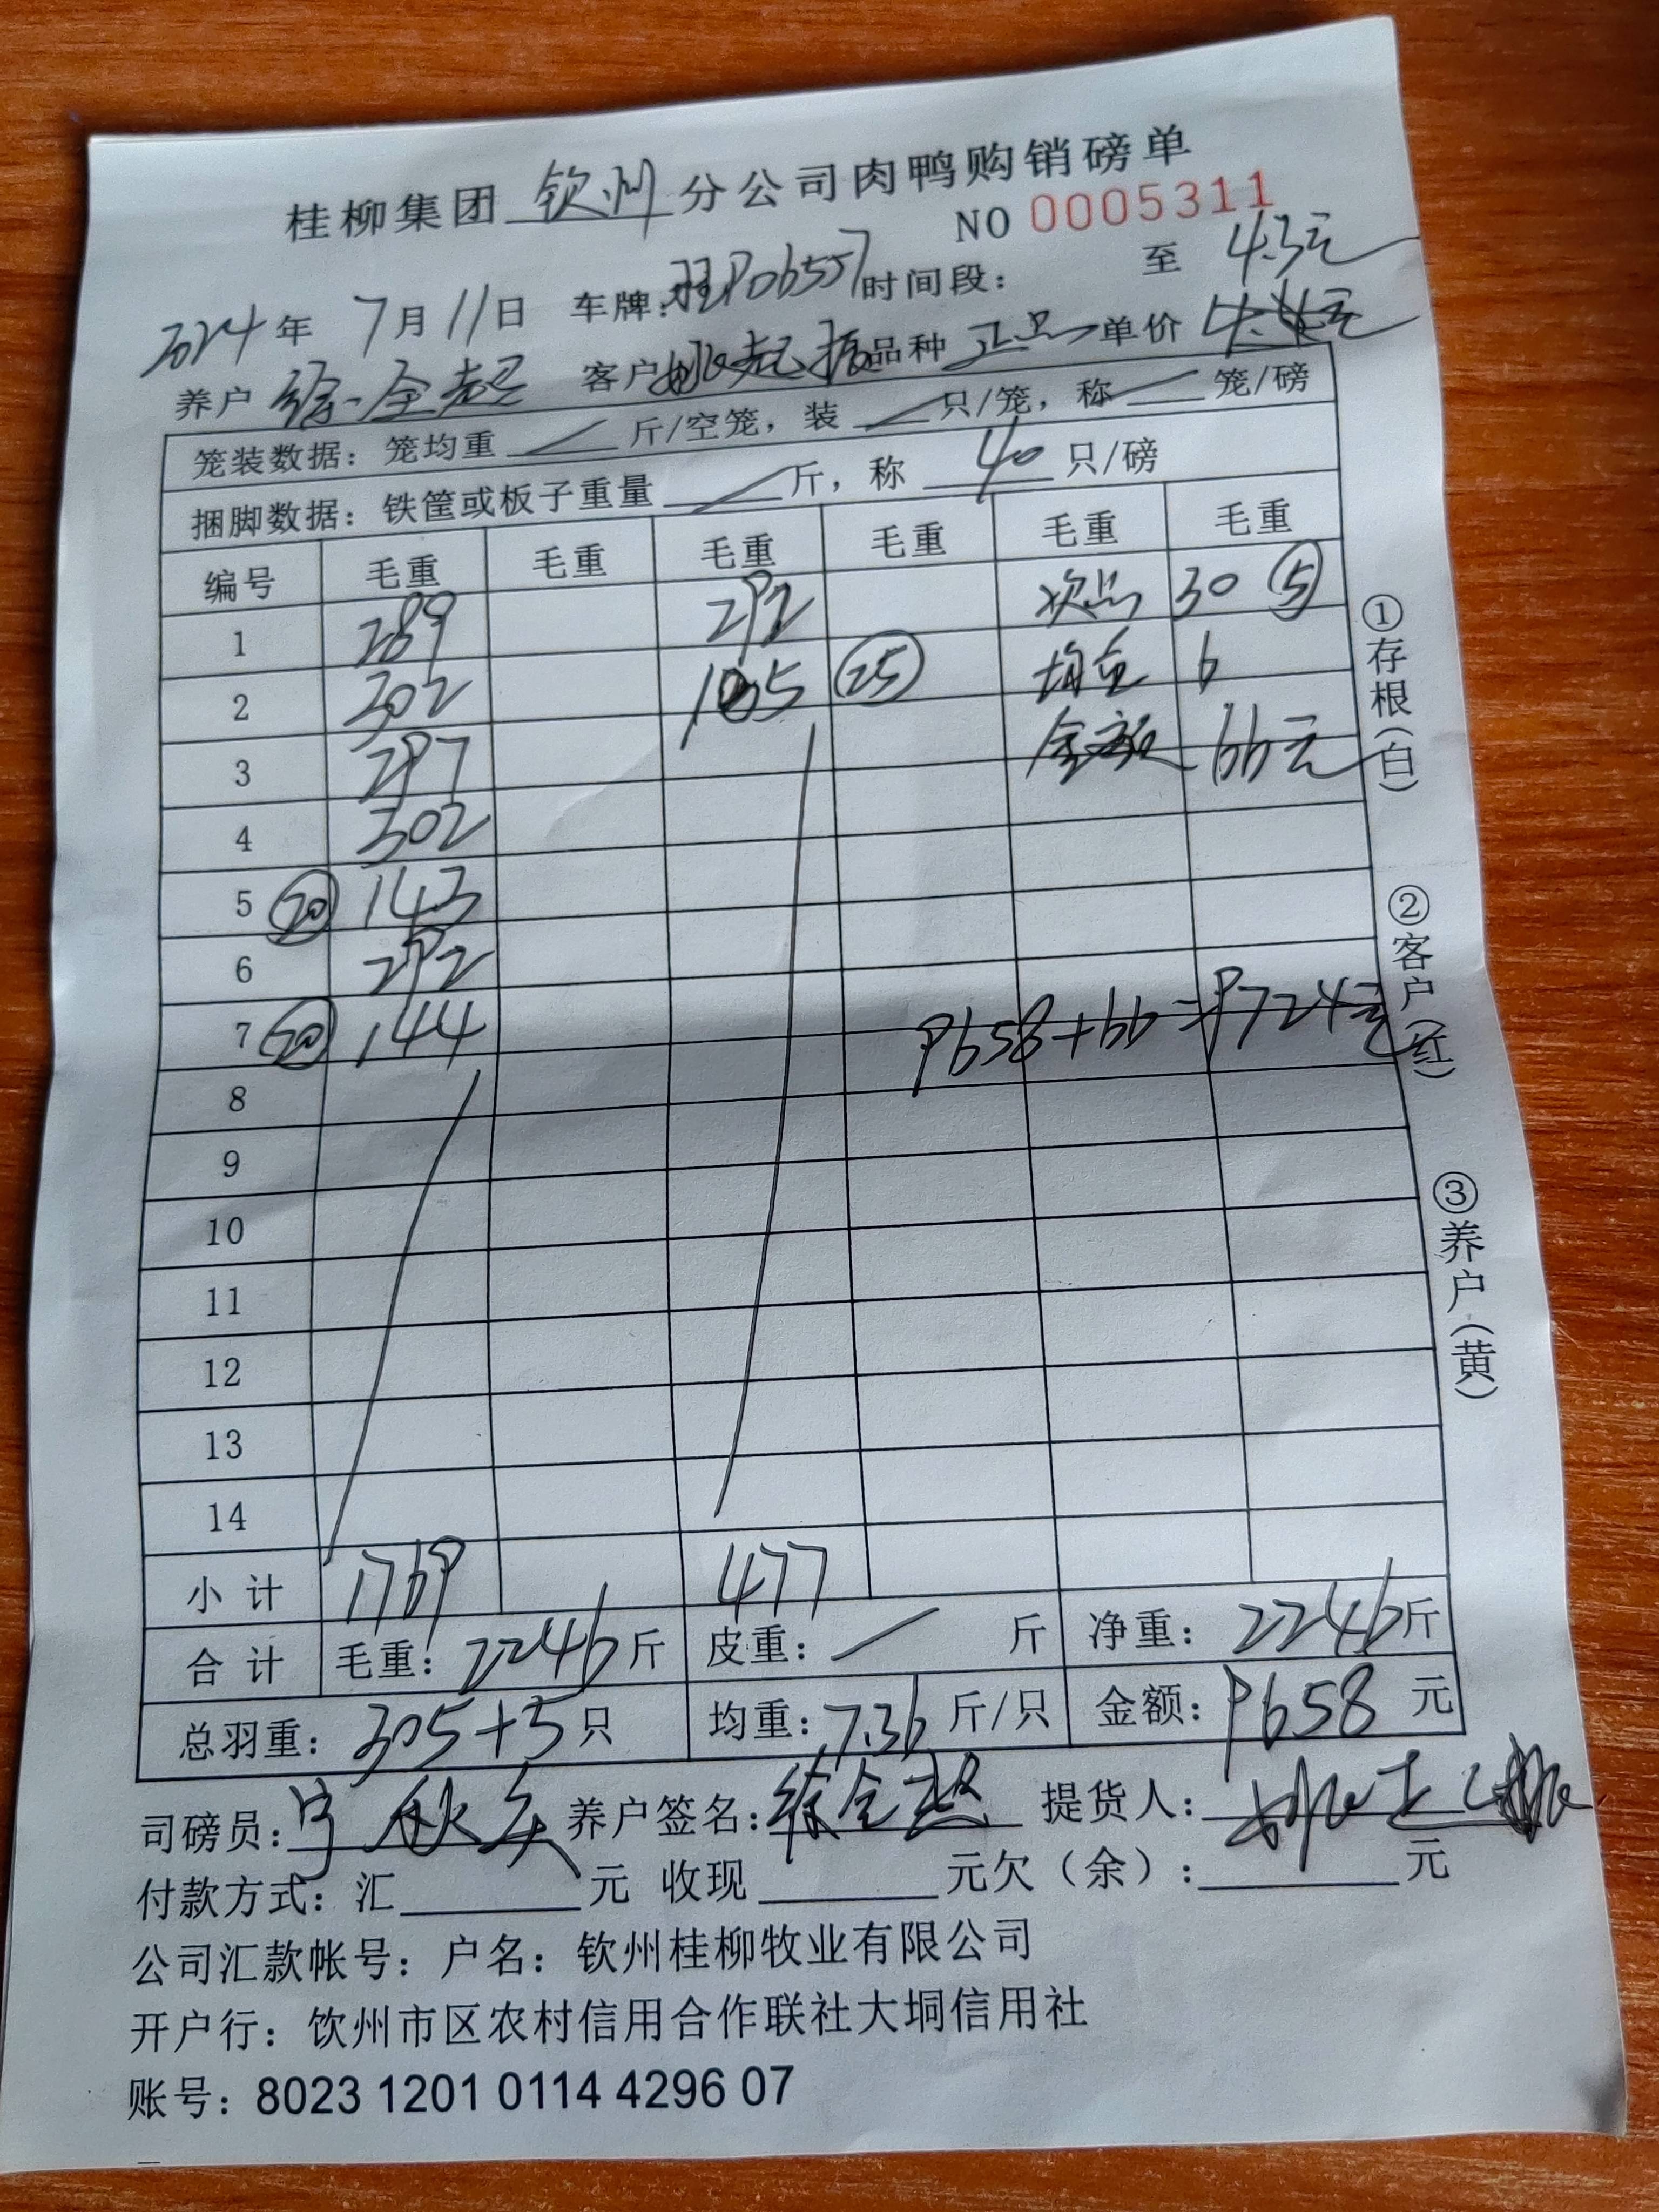 桂柳集团 钦州 分公司肉鸭购销磅单
NO 0005311
2024年 7月11日 车牌: P06557 时间段: 至 4.3元
养户 徐全超 客户 姚起振 品种 正品 单价 4.4元
笼装数据: 笼均重 / 斤/空笼, 装 / 只/笼, 称 / 笼/磅
捆脚数据: 铁筐或板子重量 / 斤, 称 40 只/磅
编号 毛重 毛重 毛重 毛重 毛重 毛重
1 289 292 次品 30 ⑤
2 302 185 ㉕ 均重 6
3 297 金额 66元
4 302
5 ⑳ 143
6 292
7 ⑳ 144
9658+66=9724元
8
9
10
11
12
13
14
小计 1769 477
合计 毛重: 2246斤 皮重: / 斤 净重: 2246斤
总羽重: 305+5只 均重: 7.36斤/只 金额: 9658 元
司磅员: 养户签名: 徐全超 提货人:
付款方式: 汇 元 收现 元欠(余): 元
公司汇款帐号: 户名: 钦州桂柳牧业有限公司
开户行: 钦州市区农村信用合作联社大垌信用社
账号: 8023 1201 0114 4296 07
①存根(白)
②客户(红)
③养户(黄)